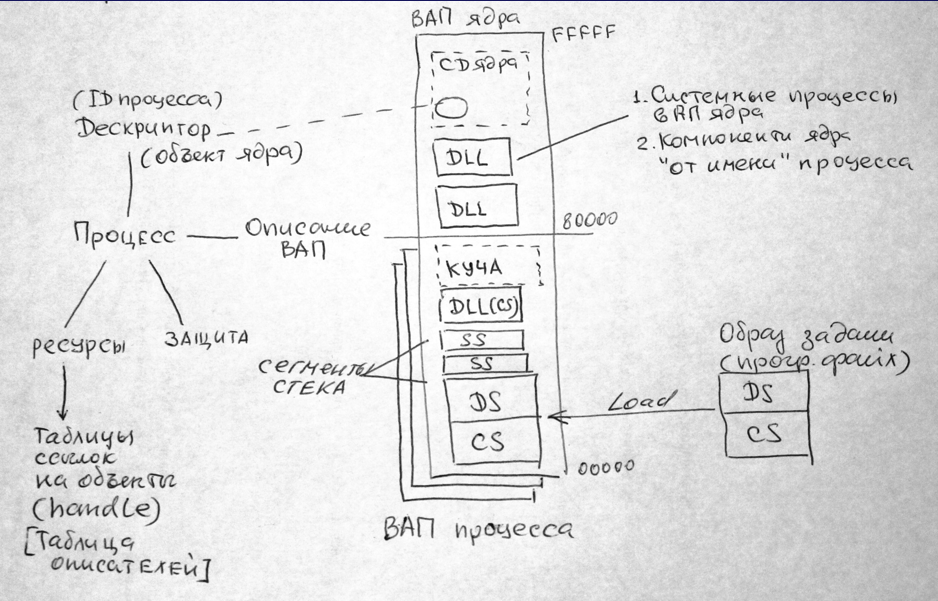 ВАП ядра
FFFFF
CD ядра
(ID процесса)
Дескриптор
(объект ядра)
1. Системные процессы
в ВАП ядра
2. Компоненты ядра
"от имени" процесса
DLL
DLL
80000
Процесс
Описание
ВАП
КУЧА
DLL(CS)
РЕСУРСЫ
ЗАЩИТА
SS
SS
СЕГМЕНТЫ
СТЕКА
DS
CS
Load
Образ задачи
(прогр. файл)
DS
CS
00000
Таблицы
ссылок
на объекты
(handle)
[Таблица
описатЕЛЕЙ]
ВАП процесса